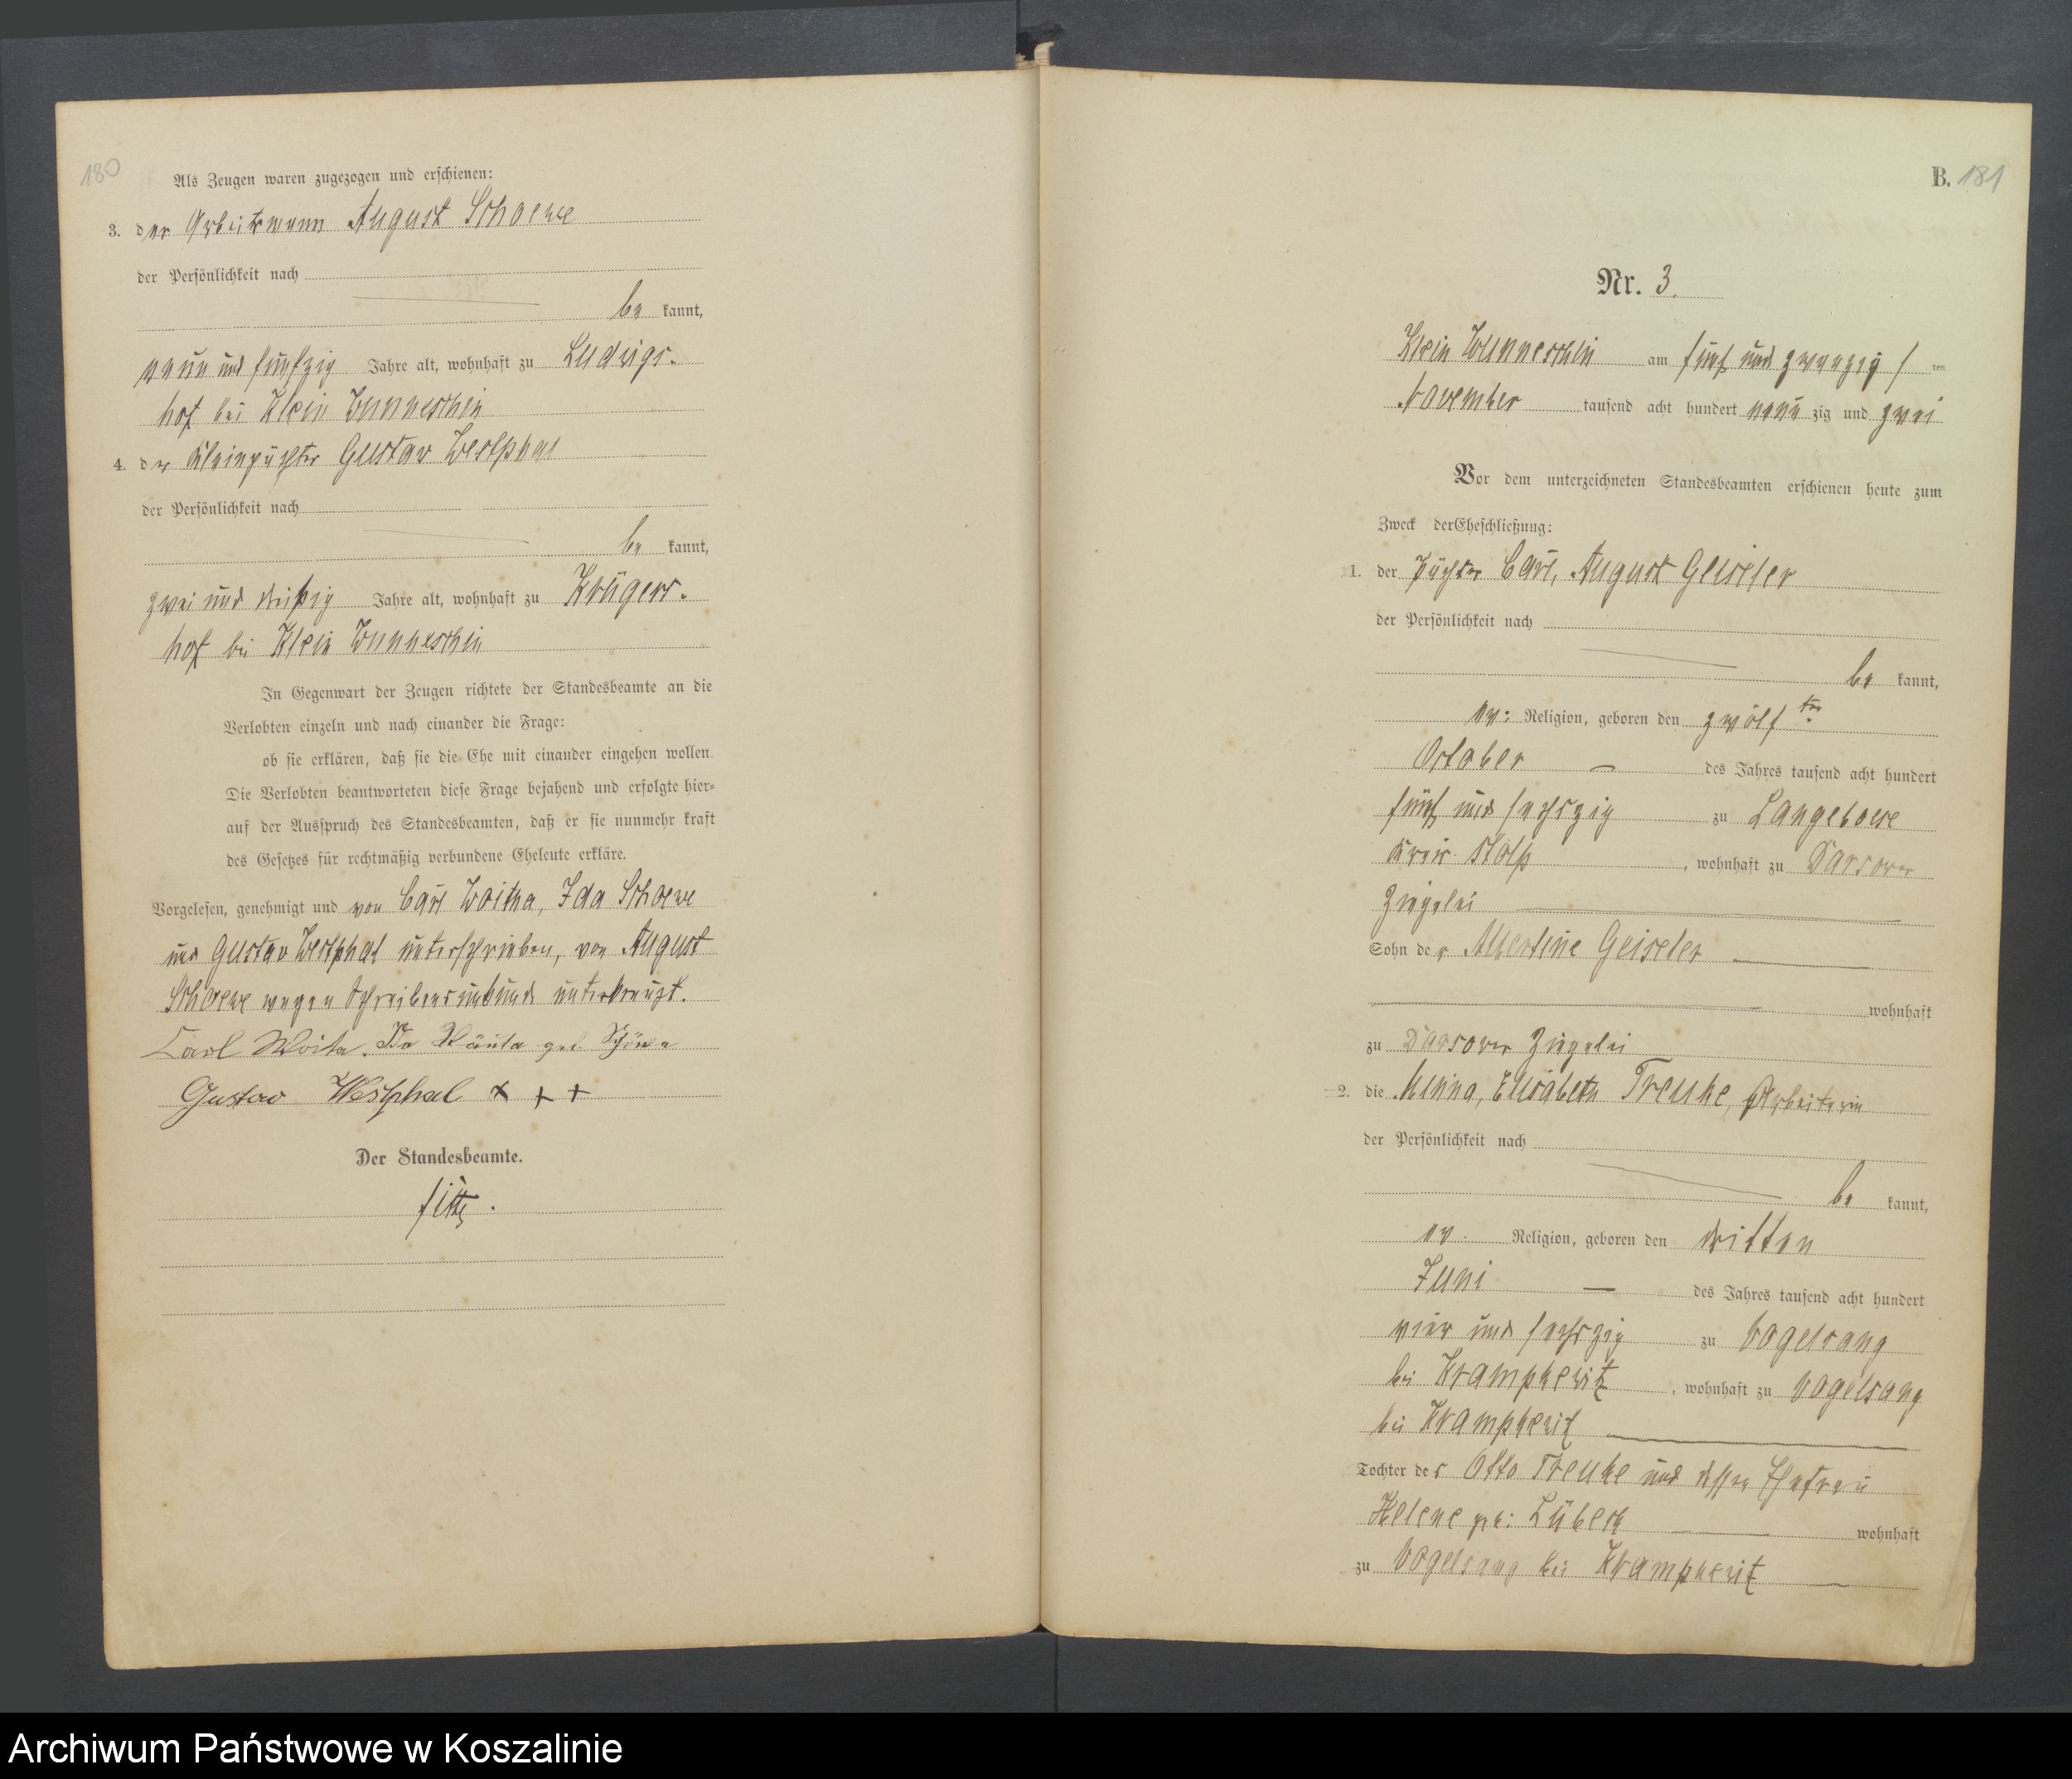 180
Als Zeugen waren zugezogen und erschienen:
3. der Arbeitsmann August Schoewe
der Persönlichkeit nach
be kannt,
neun und fünfzig Jahre alt, wohnhaft zu Ludwigs-
hof bei Klein Wunneschin
4. der Kleinpächter Gustav Westphal
der Persönlichkeit nach
be kannt,
zwei und dreißig Jahre alt, wohnhaft zu Krügers-
hof bei Klein Wunneschin
In Gegenwart der Zeugen richtete der Standesbeamte an die
Verlobten einzeln und nach einander die Frage:
ob sie erklären, daß sie die Ehe mit einander eingehen wollen.
Die Verlobten beantworteten diese Frage bejahend und erfolgte hier=
auf der Ausspruch des Standesbeamten, daß er sie nunmehr kraft
des Gesetzes für rechtmäßig verbundene Eheleute erkläre.
Vorgelesen, genehmigt und von Carl Woitha, Ida Schoewe
und Gustav Westphal unterschrieben, von August
Schoewe wegen Schreibensunkunde unterkreuzt.
Carl Woita. geb Schöwe
Gustav Westphal + + +
Der Standesbeamte.
B. 181
Nr. 3.
Klein Wunneschin am fünf und zwanzig ten
November tausend acht hundert neun zig und zwei
Vor dem unterzeichneten Standesbeamten erschienen heute zum
Zweck der Eheschließung:
1. der Pächter Carl, August Geiseler
der Persönlichkeit nach
be kannt,
ev: Religion, geboren den zwölften
October des Jahres tausend acht hundert
fünf und sechszig zu Langeboese
Kreis Stolp, wohnhaft zu Darsower
Ziegelei
Sohn der Albertine Geiseler
wohnhaft
zu Darsower Ziegelei
2. die Minna, Elisabeth Treuke, Arbeiterin
der Persönlichkeit nach
be kannt,
ev. Religion, geboren den dritten
Juni des Jahres tausend acht hundert
vier und sechszig zu Vogelsang
bei Krampkewitz, wohnhaft zu Vogelsang
bei Krampkewitz
Tochter des Otto Treuke und dessen Ehefrau
Helene geb: Lübeck wohnhaft
zu Vogelsang bei Krampkewitz
Archiwum Państwowe w Koszalinie